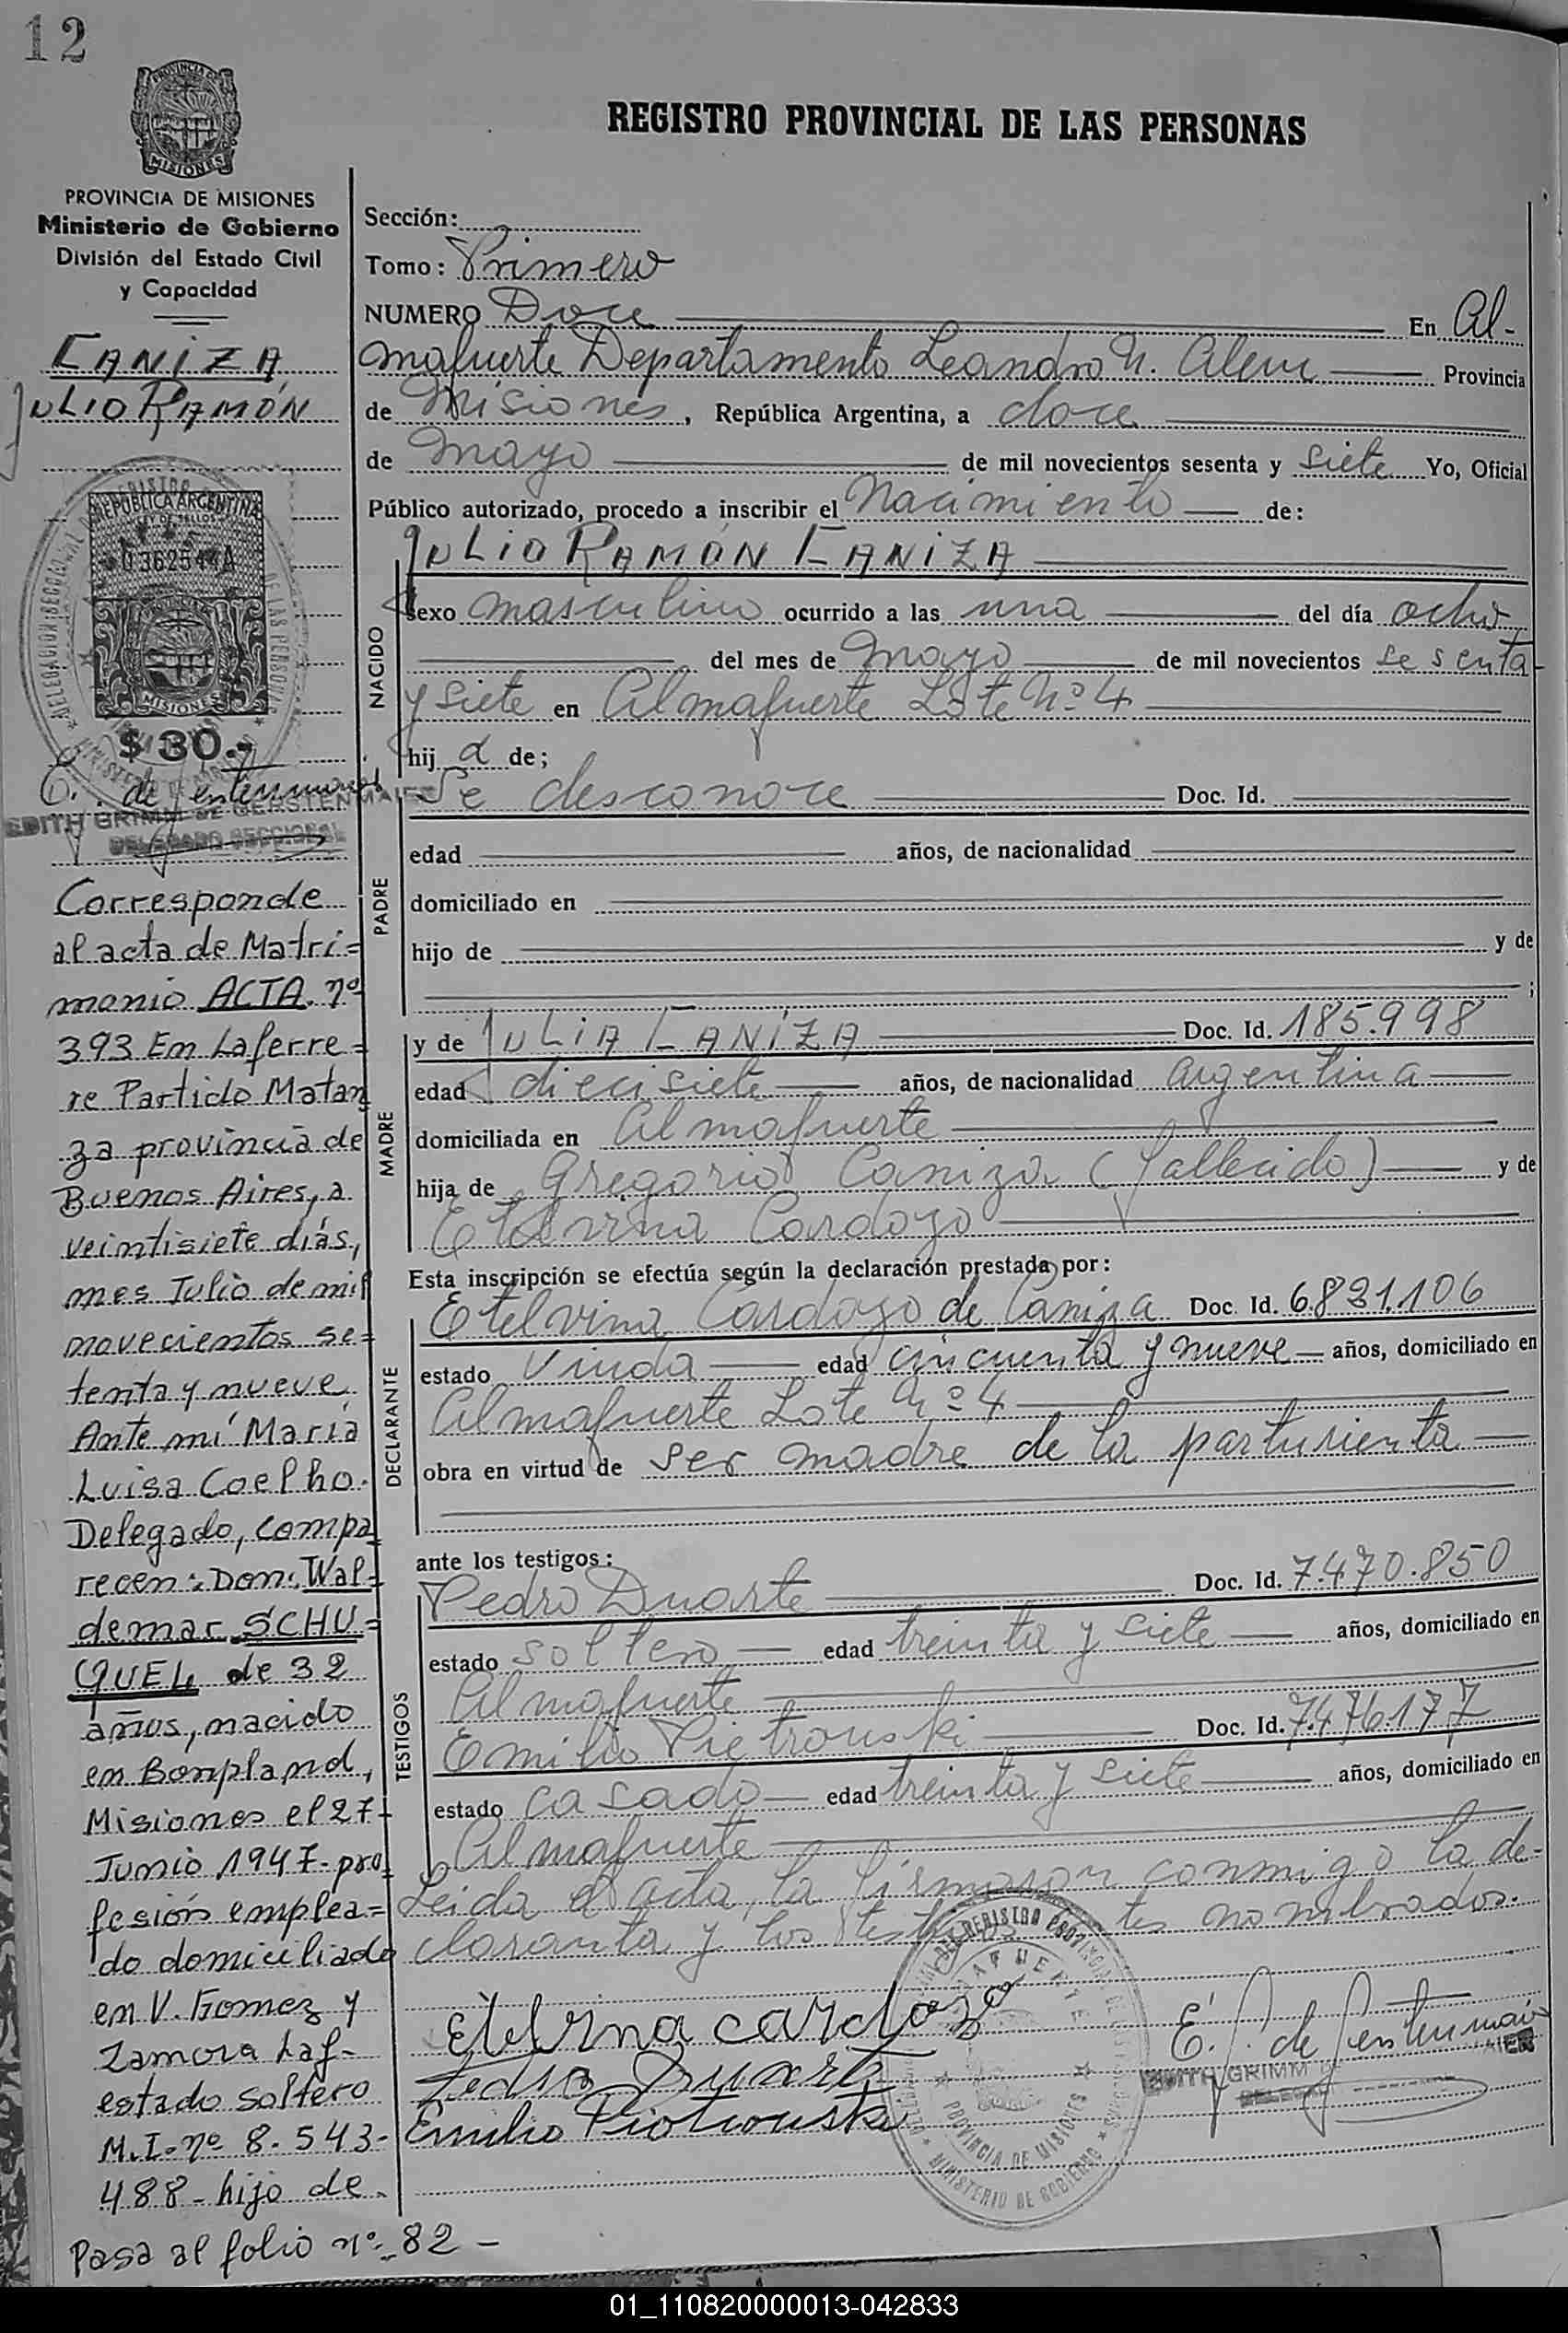 12
PROVINCIA DE
MISIONES
REGISTRO PROVINCIAL DE LAS PERSONAS
PROVINCIA DE MISIONES
Ministerio de Gobierno
División del Estado Civil
y Capacidad
CANIZA
JULIO RAMÓN
REPUBLICA ARGENTINA
LEY DE SELLOS
0362544A
MISIONES
$ 30.-
EDITH GRIMM DE GERSTENMAIER
DELEGADO SECCIONAL
Corresponde
al acta de Matri=
monio ACTA nº
393 En Laferre=
re Partido Matan
za provincia de
Buenos Aires, a
veintisiete días,
mes Julio de mil
novecientos se=
tenta y nueve
Ante mí María
Luisa Coelho.
Delegado, compa
recen: Don: Wal=
demar SCHU=
QUEL de 32
años, nacido
en Bonpland,
Misiones el 27-
Junio 1947- pro=
fesión emplea=
do domiciliado
en V. Gomez y
Zamora Laf-
estado soltero
M.I. nº 8.543-
488- hijo de.
Pasa al folio nº 82 -
Sección:
Tomo: Primero
NUMERO Doce En Al-
mafuerte Departamento Leandro N. Alem Provincia
de Misiones, República Argentina, a doce
de mayo de mil novecientos sesenta y siete Yo, Oficial
Público autorizado, procedo a inscribir el Nacimiento de:
JULIO RAMÓN CANIZA
NACIDO
sexo masculino ocurrido a las una del día ocho
del mes de mayo de mil novecientos sesenta
y siete en Almafuerte Lote Nº 4
hij o de;
PADRE
Se desconoce Doc. Id.
edad años, de nacionalidad
domiciliado en
hijo de y de
;
MADRE
y de JULIA CANIZA Doc. Id. 185.998
edad diecisiete años, de nacionalidad argentina
domiciliada en Almafuerte
hija de Gregorio Caniza (fallecido) y de
Etelvina Cardozo
Esta inscripción se efectúa según la declaración prestada por:
DECLARANTE
Etelvina Cardozo de Caniza Doc. Id. 6.831.106
estado Viuda edad cincuenta y nueve años, domiciliado en
Almafuerte Lote Nº 4
obra en virtud de ser madre de la parturienta
ante los testigos:
TESTIGOS
Pedro Duarte Doc. Id. 7.470.850
estado soltero edad treinta y siete años, domiciliado en
Almafuerte
Emilio Pietrouski Doc. Id. 7.476.177
estado casado edad treinta y siete años, domiciliado en
Almafuerte
Leida el acta, la firmaron conmigo la de-
claranta y los nombrados.
Etelvina cardozo
Pedro Duarte
Emilio Piotrouski
EDITH GRIMM
PROVINCIA DE MISIONES
MINISTERIO DE GOBIERNO
01_110820000013-042833